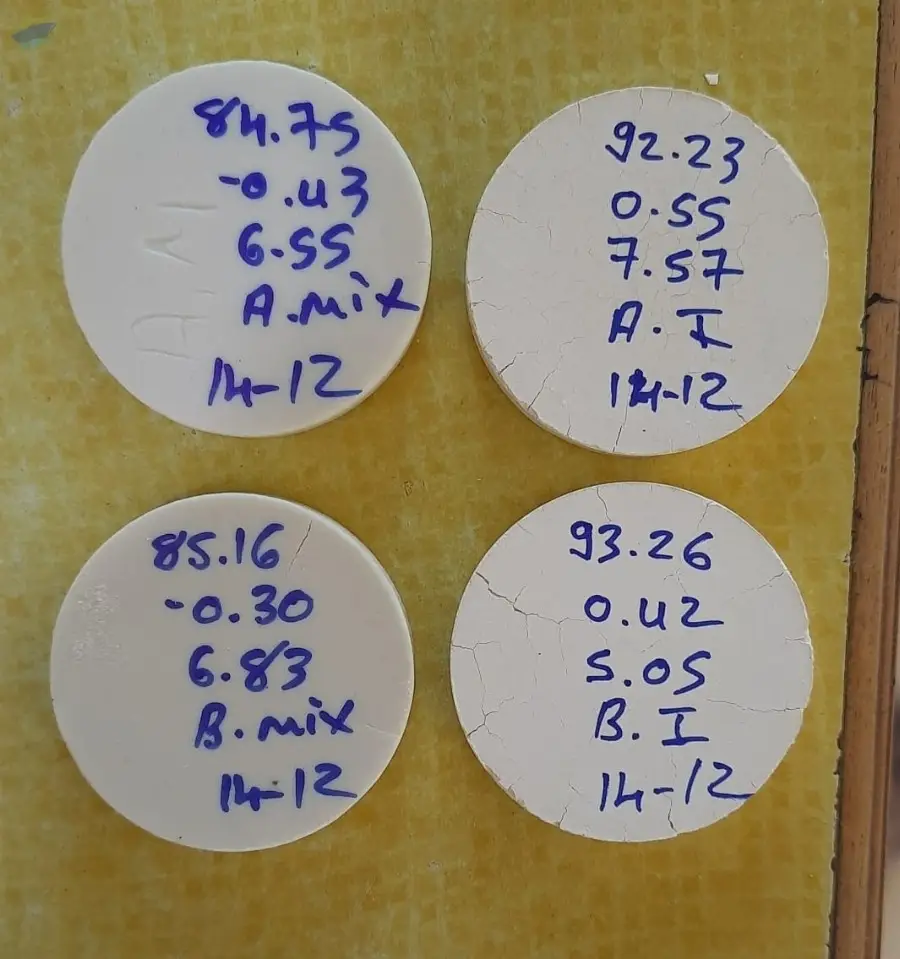 84.75
-0.43
6.55
A.mix
14-12
A.M
92.23
0.55
7.57
A.I
14-12
85.16
-0.30
6.83
B.mix
14-12
93.26
0.42
5.05
B.I
14-12